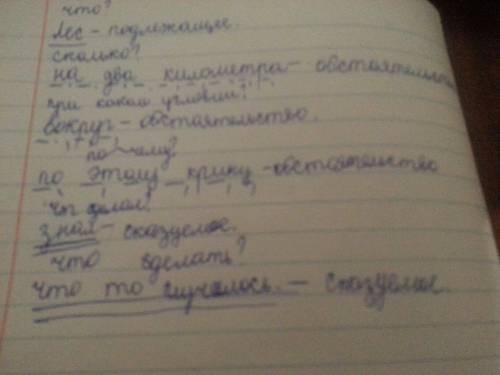 что?
Лес - подлежащие.
сколько?
на два километра - обстоятельст
при каком условии?
вокруг - обстоятельство.
по чему?
по этому крику - обстоятельство
что делал?
знал - сказуемое.
что сделать?
что то случалось. - сказуемое.